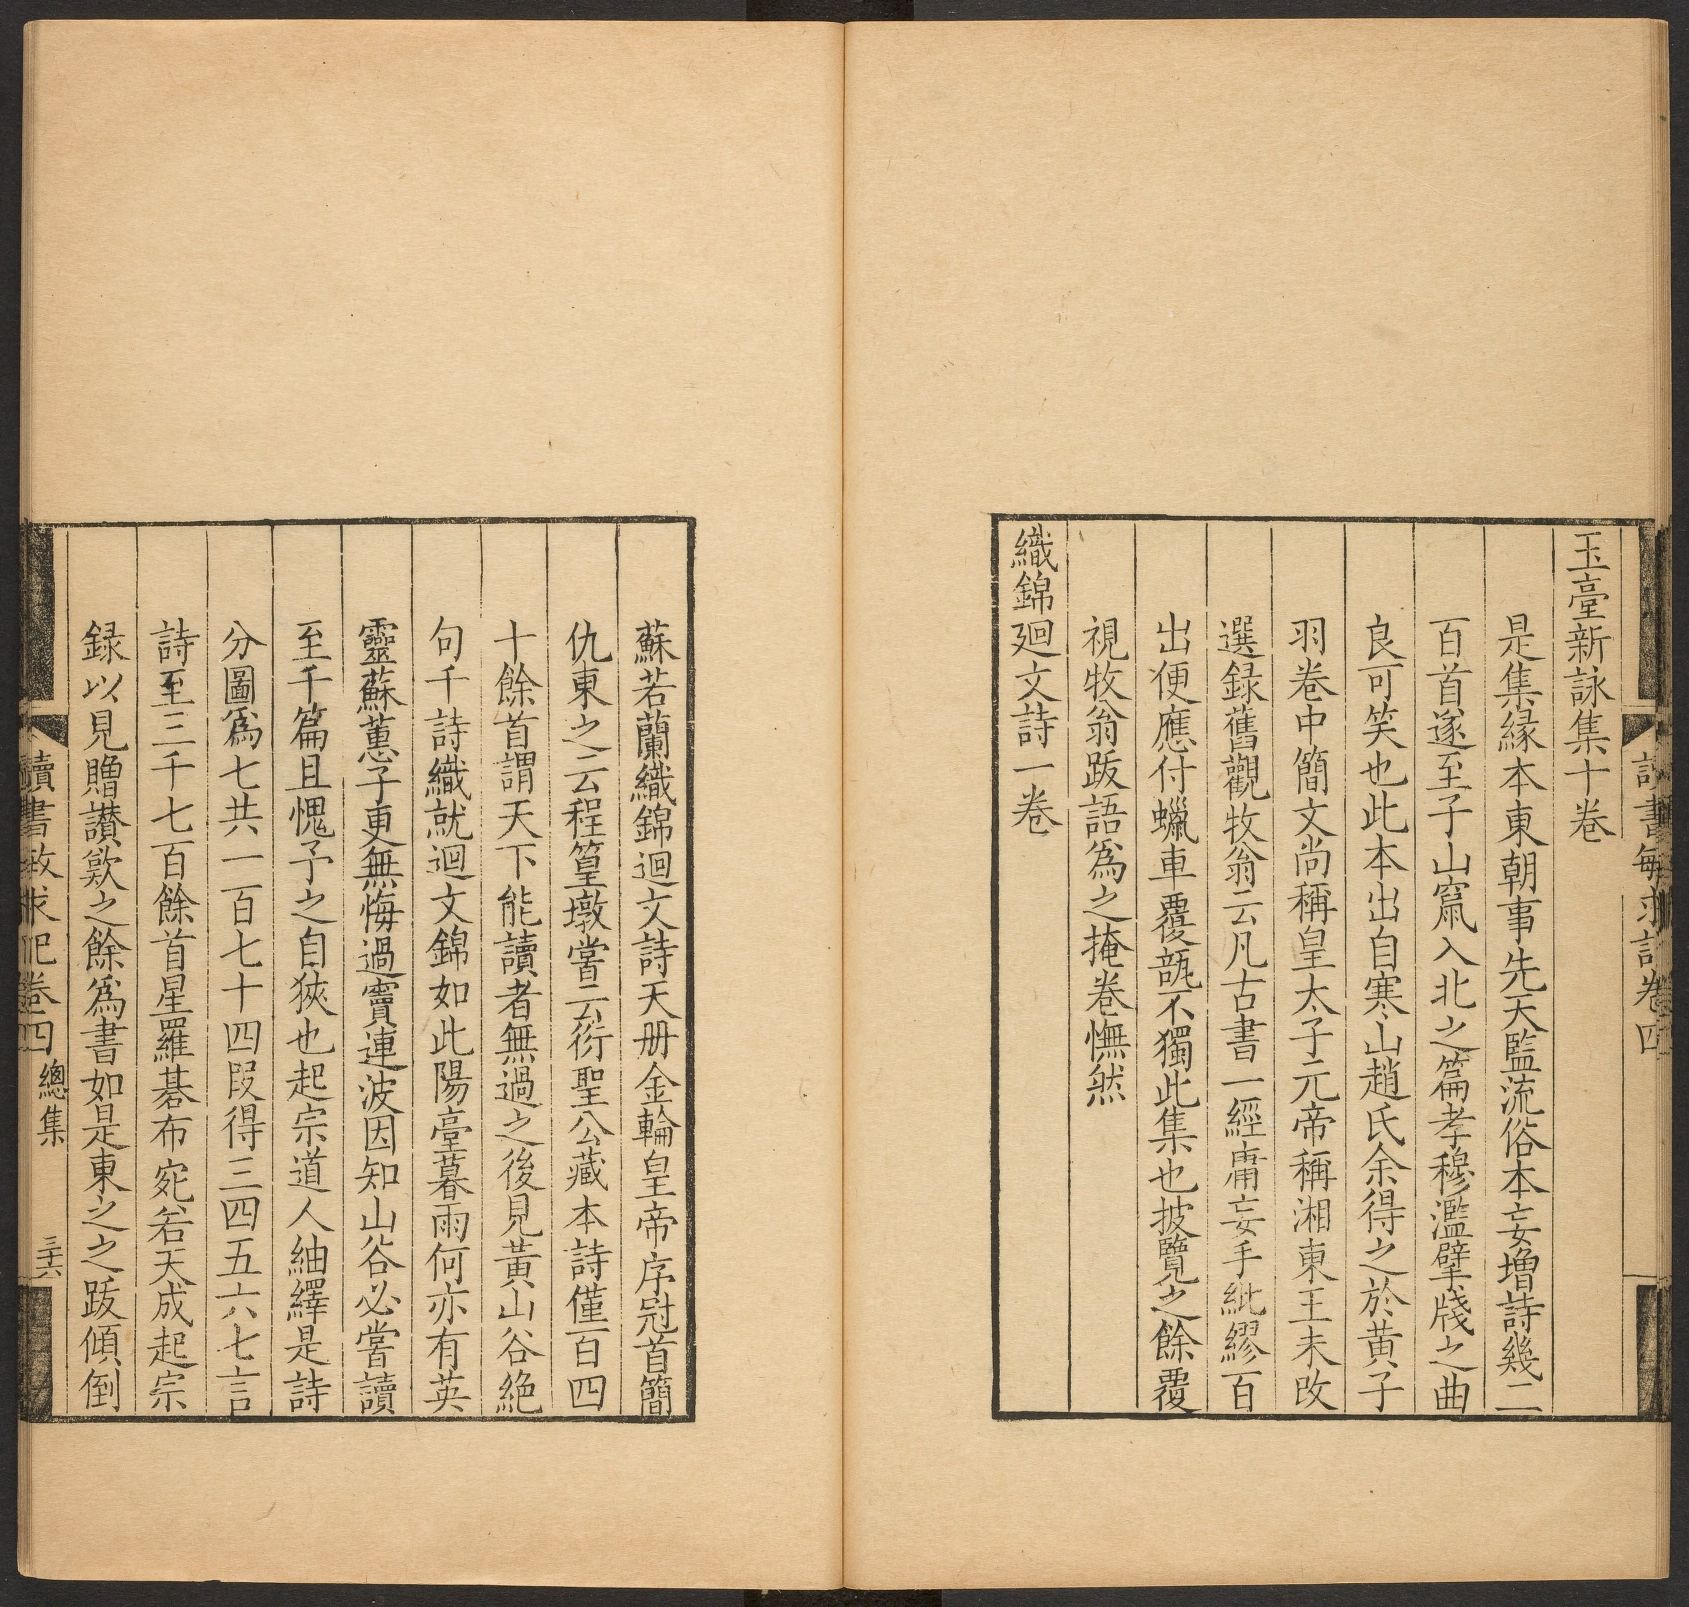 玉臺新詠集十卷
是集緣本東朝事先天監流俗本妄增詩幾二
百首遂至子山竄入北之篇孝穆濫擘牋之曲
良可笑也此本出自寒山趙氏余得之於黃子
羽卷中簡文尚稱皇太子元帝稱湘東王未改
選録舊觀牧翁云凡古書一經庸妄手紕繆百
出便應付蠟車覆瓿不獨此集也披覽之餘覆
視牧翁跋語爲之掩卷憮然
織錦迴文詩一卷
蘇若蘭織錦迴文詩天册金輪皇帝序冠首簡
仇東之云程篁墩嘗云衍聖公藏本詩僅百四
十餘首謂天下能讀者無過之後見黃山谷絶
句千詩織就迴文錦如此陽臺暮雨何亦有英
靈蘇蕙子更無悔過竇連波因知山谷必嘗讀
至千篇且愧予之自狹也起宗道人紬繹是詩
分圖爲七共一百七十四段得三四五六七言
詩至三千七百餘首星羅碁布宛若天成起宗
録以見贈讃歎之餘爲書如是東之之跋傾倒
讀書敏求記卷四 總集 三十六